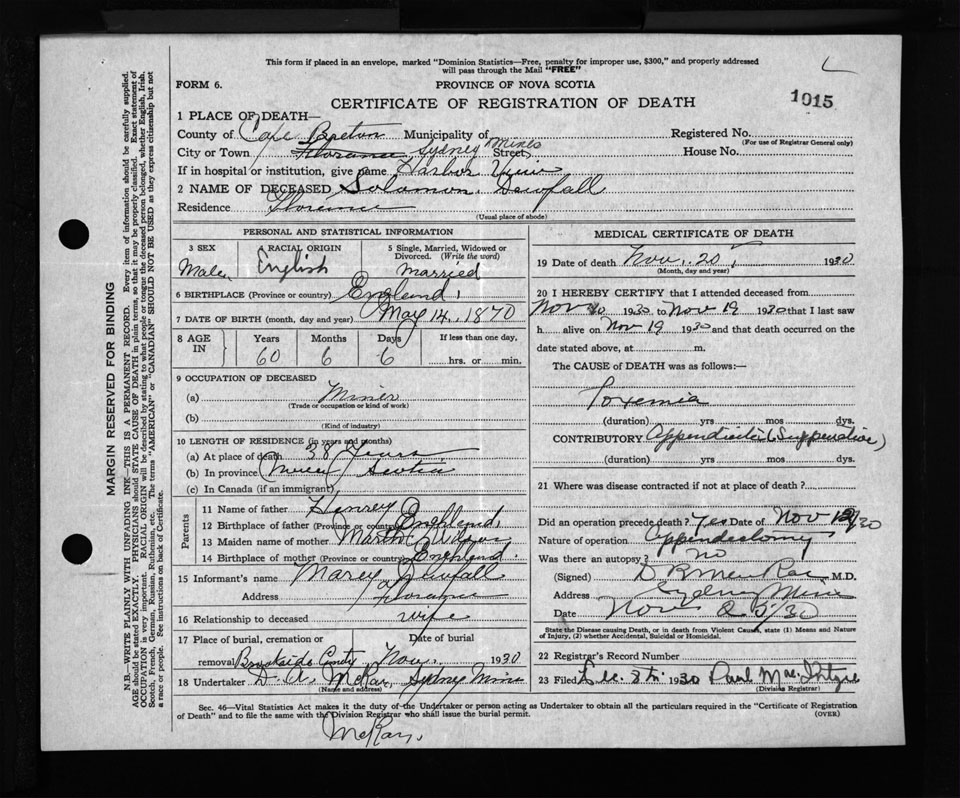 This form if placed in an envelope, marked "Dominion Statistics—Free, penalty for improper use, $300," and properly addressed
will pass through the Mail "FREE"
FORM 6.
PROVINCE OF NOVA SCOTIA
CERTIFICATE OF REGISTRATION OF DEATH
1015
1 PLACE OF DEATH—
County of Cape Breton Municipality of
Registered No.
(For use of Registrar General only)
City or Town Florence Sydney Mines Street
House No.
If in hospital or institution, give name Harbor View
2 NAME OF DECEASED Solomon Dewfall
Residence Florence
(Usual place of abode)
MARGIN RESERVED FOR BINDING
N.B.—WRITE PLAINLY WITH UNFADING INK—THIS IS A PERMANENT RECORD. Every item of information should be carefully supplied.
AGE should be stated EXACTLY. PHYSICIANS should STATE CAUSE OF DEATH in plain terms, so that it may be properly classified. Exact statement of
OCCUPATION is very important. RACIAL ORIGIN will be described by stating to what people or tongue the deceased person belonged, whether English, Irish,
Scotch, French, German, Russian, Ruthenian, etc. The terms "AMERICAN" or "CANADIAN" SHOULD NOT BE USED as they express citizenship but not
a race or people. See instructions on back of Certificate.
PERSONAL AND STATISTICAL INFORMATION
3 SEX
Male
4 RACIAL ORIGIN
English
5 Single, Married, Widowed or
Divorced. (Write the word)
Married
6 BIRTHPLACE (Province or country) England
7 DATE OF BIRTH (month, day and year) May 14, 1870
8 AGE IN
Years Months Days If less than one day,
60 6 6 hrs. or min.
9 OCCUPATION OF DECEASED
(a) Miner
(Trade or occupation or kind of work)
(b)
(Kind of industry)
10 LENGTH OF RESIDENCE (in years and months)
(a) At place of death 38 Years
(b) In province Scotia
(c) In Canada (if an immigrant)
Parents
11 Name of father Henrey
12 Birthplace of father (Province or country) England
13 Maiden name of mother Martha
14 Birthplace of mother (Province or country) England
15 Informant's name Marey Dewfall
Address Florence
16 Relationship to deceased wife
17 Place of burial, cremation or Date of burial
removal Nov. 1930
18 Undertaker D. A. McKay, Sydney Mines
(Name and address)
MEDICAL CERTIFICATE OF DEATH
19 Date of death Nov. 20, 1930
(Month, day and year)
20 I HEREBY CERTIFY that I attended deceased from
Nov 10 1930 to Nov 19 1930 that I last saw
h alive on Nov 19 1930 and that death occurred on the
date stated above, at m.
The CAUSE of DEATH was as follows:—
Toxemia
(duration) yrs mos dys.
CONTRIBUTORY Appendicitis (Suppurative)
(duration) yrs mos dys.
21 Where was disease contracted if not at place of death?
Did an operation precede death? Yes Date of Nov /30
Nature of operation Appendectomy
Was there an autopsy? No
(Signed) M.D.
Address Sydney Mines
Date Nov 25/30
State the Disease causing Death, or in death from Violent Causes, state (1) Means and Nature
of Injury, (2) whether Accidental, Suicidal or Homicidal.
22 Registrar's Record Number
23 Filed Dec. 8th 1930 Paul
(Division Registrar)
Sec. 46—Vital Statistics Act makes it the duty of the Undertaker or person acting as Undertaker to obtain all the particulars required in the "Certificate of Registration
of Death" and to file the same with the Division Registrar who shall issue the burial permit.
(OVER)
McKay.